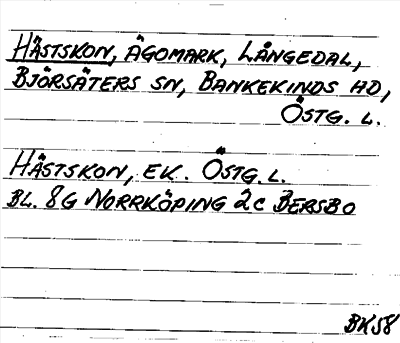 HÄSTSKON, ÄGOMARK, LÅNGEDAL,
BJÖRSÄTERS SN, BANKEKINDS HD,
ÖSTG. L.
HÄSTSKON, EK. ÖSTG. L.
BL. 8G NORRKÖPING 2C BERSBO
BK58